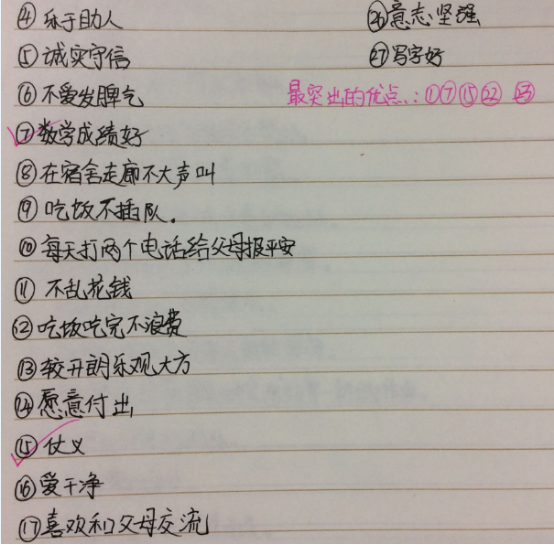 ④乐于助人
⑤诚实守信
⑥不爱发脾气
⑦数学成绩好
⑧在宿舍走廊不大声叫
⑨吃饭不插队.
⑩每天打两个电话给父母报平安
⑪不乱花钱
⑫吃饭吃完不浪费
⑬较开朗乐观大方
⑭愿意付出
⑮仗义
⑯爱干净
⑰喜欢和父母交流
㉖意志坚强
㉗写字好
最突出的优点:①⑦⑮㉒